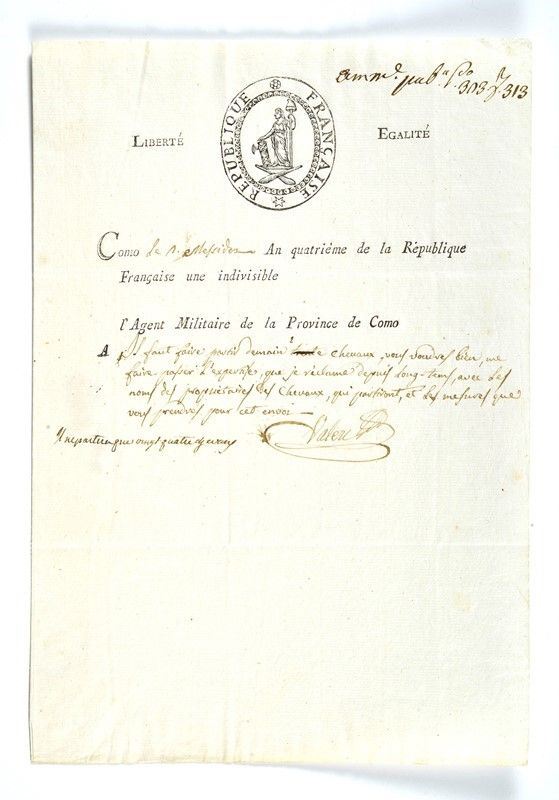 303 313
LIBERTÉ
RÉPUBLIQUE FRANÇAISE
EGALITÉ
Como le Messidor An quatriéme de la République
Française une indivisible
l'Agent Militaire de la Province de Como
A Il faut faire partir demain chevaux, vous voudrez bien, me
faire passer l'expertise, que je réclame depuis long-tems, avec les
noms des propriétaires des chevaux, qui partiront, et les mesures que
vous prendrez pour cet envoi
Il ne partira que vingt quatre chevaux
Valeri